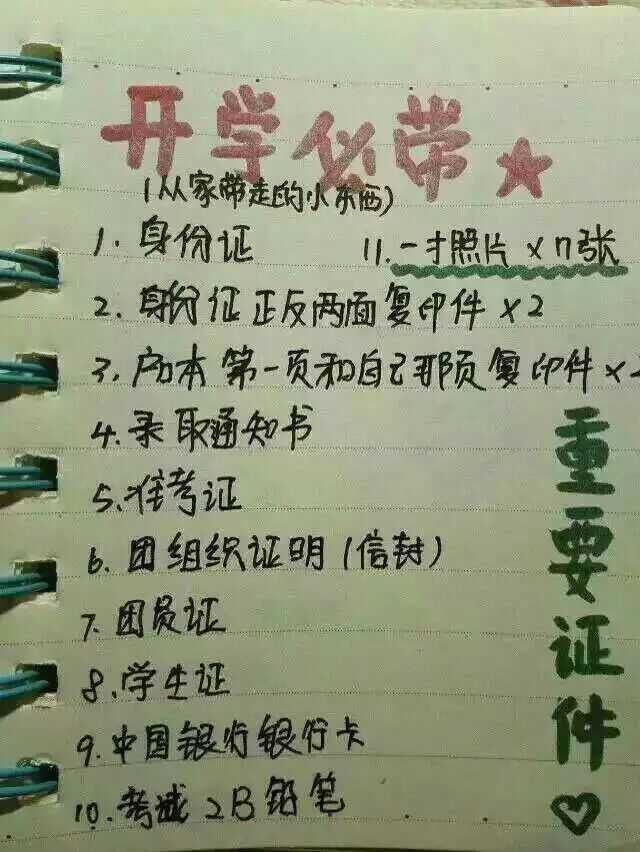 开学必带
(从家带走的小东西)
1. 身份证
11. 一寸照片×n张
2. 身份证正反两面复印件×2
3. 户口本第一页和自己那页复印件×2
4. 录取通知书
5. 准考证
6. 团组织证明(信封)
7. 团员证
8. 学生证
9. 中国银行银行卡
10. 2B铅笔
重要证件♡